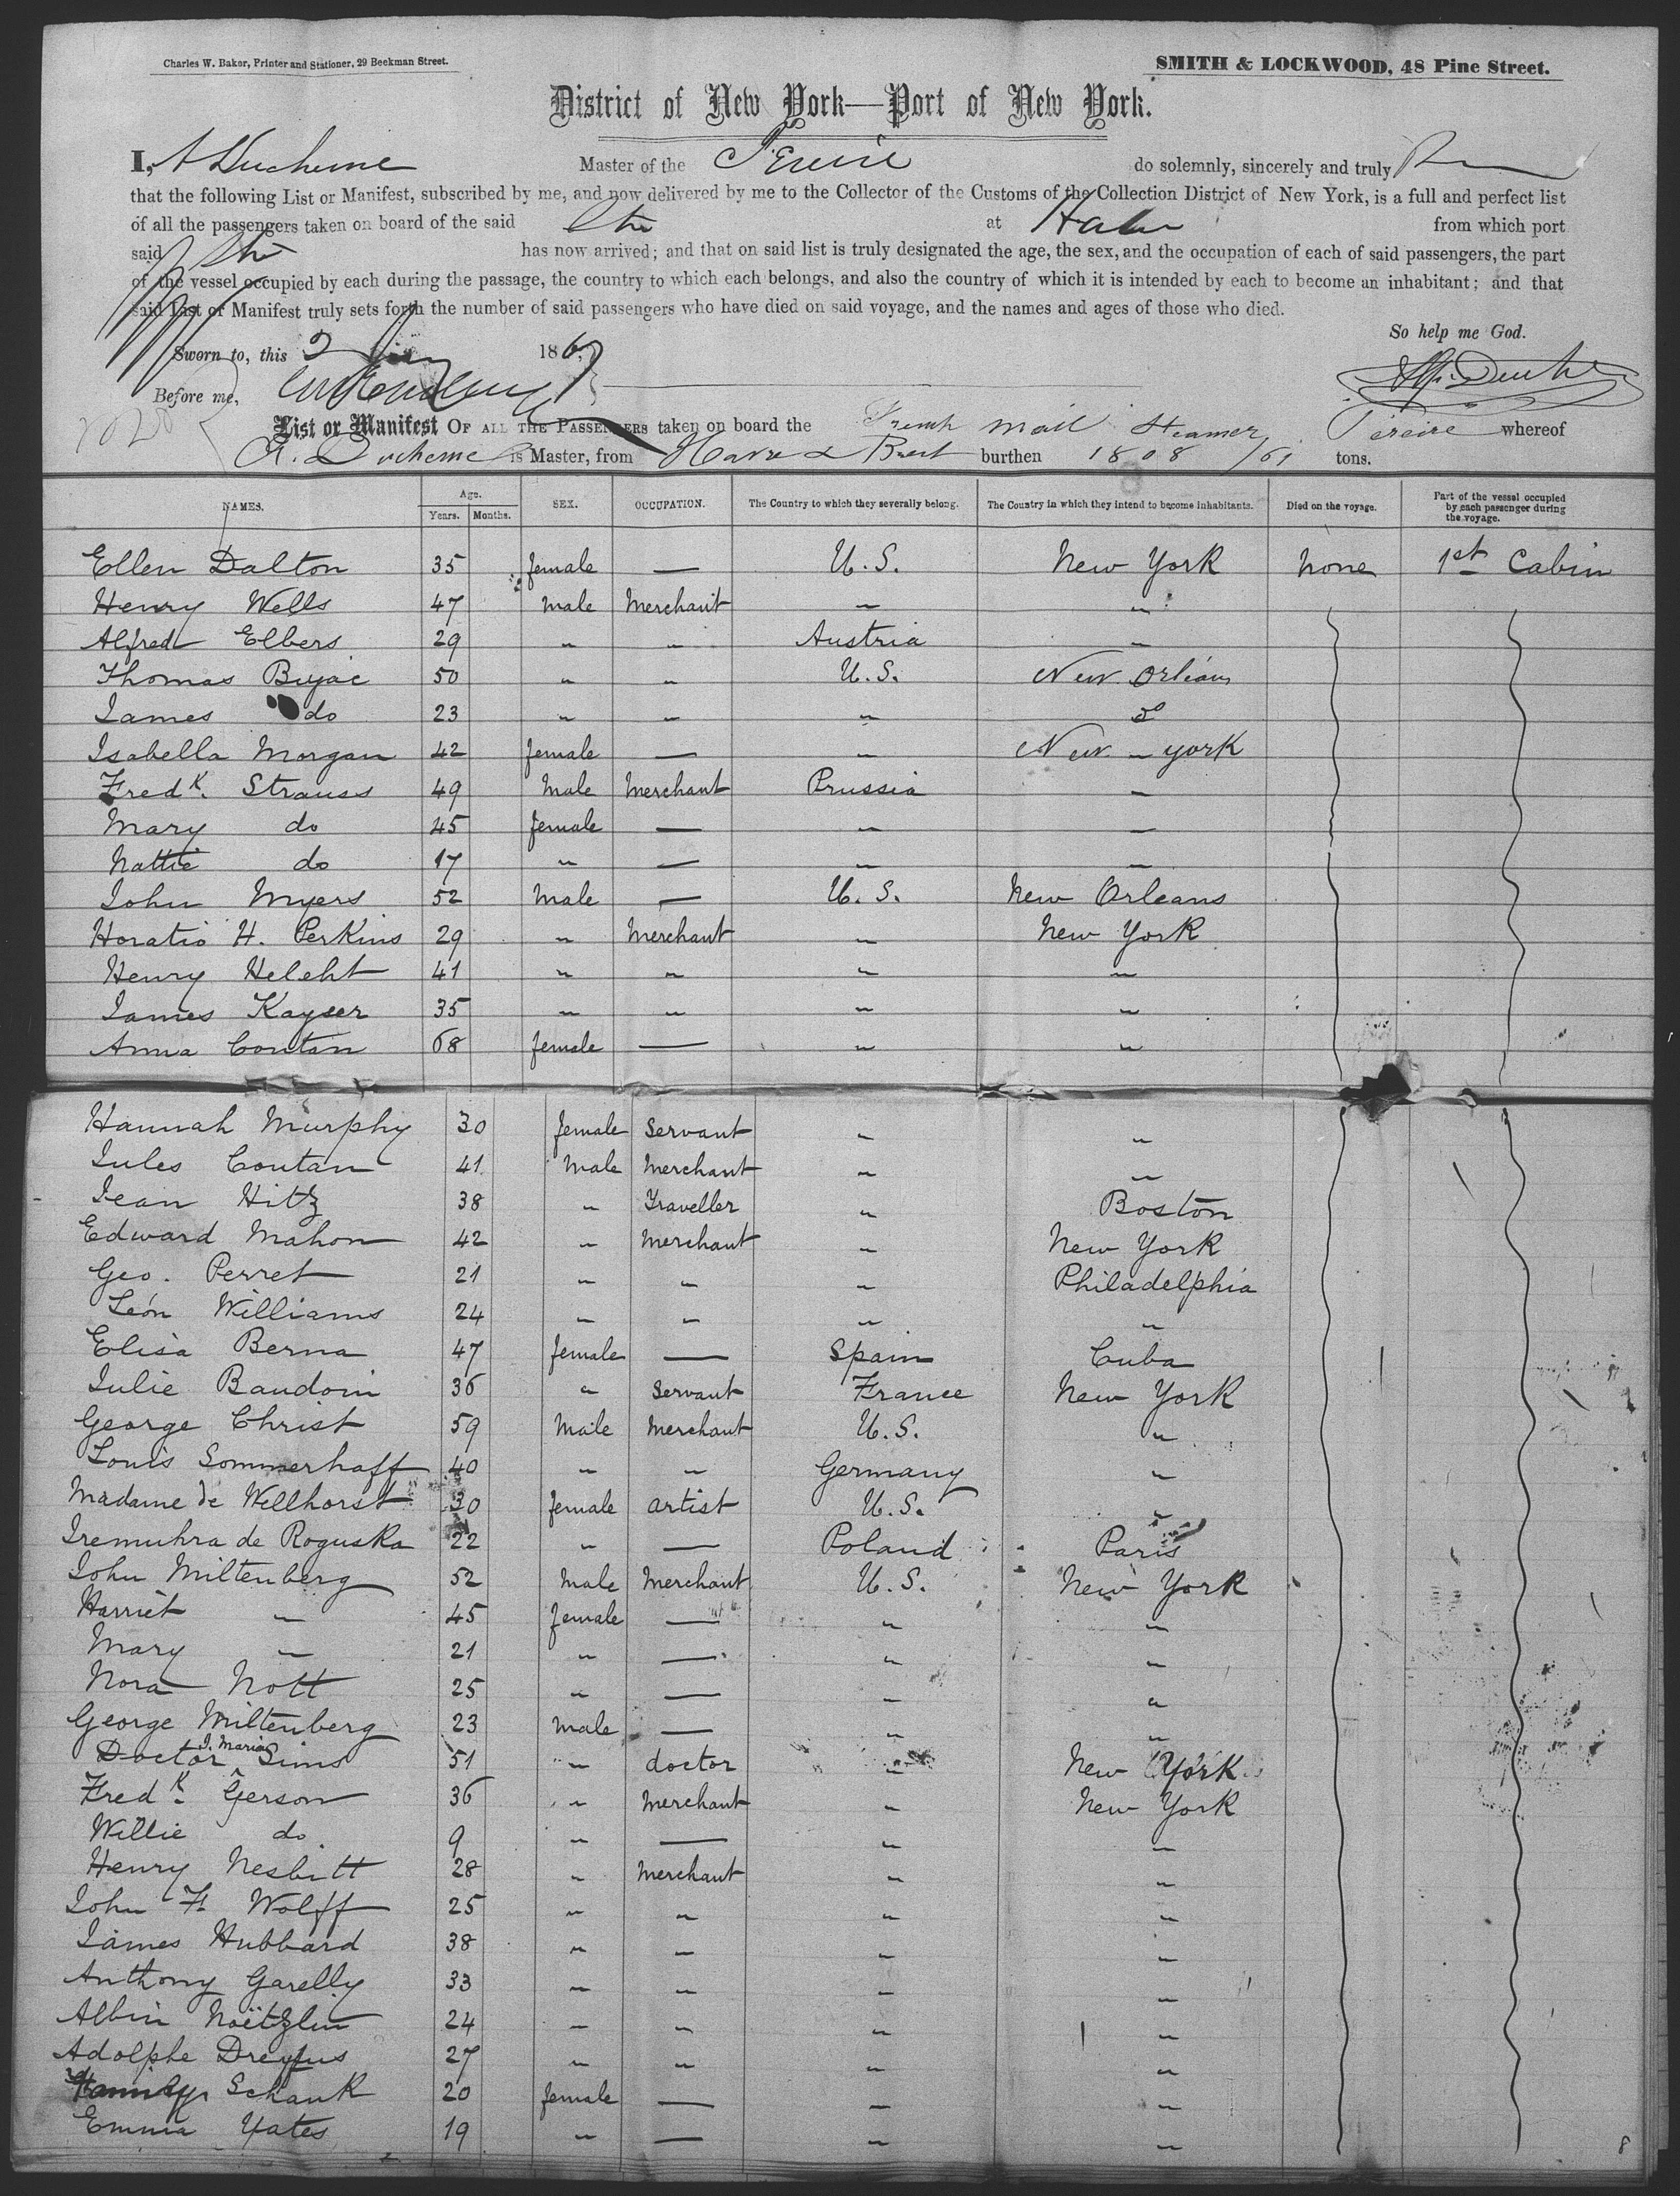 Charles W. Baker, Printer and Stationer, 29 Beekman Street.
SMITH & LOCKWOOD, 48 Pine Street.
District of New York—Port of New York.
I, A Ducheme Master of the Pereire do solemnly, sincerely and truly
that the following List or Manifest, subscribed by me, and now delivered by me to the Collector of the Customs of the Collection District of New York, is a full and perfect list
of all the passengers taken on board of the said Str at Havre from which port
said Str has now arrived; and that on said list is truly designated the age, the sex, and the occupation of each of said passengers, the part
of the vessel occupied by each during the passage, the country to which each belongs, and also the country of which it is intended by each to become an inhabitant; and that
said List or Manifest truly sets forth the number of said passengers who have died on said voyage, and the names and ages of those who died.
So help me God.
Sworn to, this 2 186
Before me,
List or Manifest OF ALL THE PASSENGERS taken on board the French mail Steamer Pereire whereof
A. Ducheme is Master, from Havre & Brest burthen 1808 /61 tons.
NAMES. Age. Years. Months. SEX. OCCUPATION. The Country to which they severally belong. The Country in which they intend to become inhabitants. Died on the voyage. Part of the vessel occupied by each passenger during the voyage.
Ellen Dalton 35 female — U.S. New York none 1st Cabin
Henry Wells 47 Male Merchant " "
Alfred Elbers 29 " " Austria "
Thomas Bujac 50 " " U.S. New Orleans
James do 23 " " " do
Isabella Morgan 42 female — " New York
Fredk. Strauss 49 Male Merchant Prussia "
Mary do 45 female — " "
Nattie do 17 " — " "
John Myers 52 Male — U.S. New Orleans
Horatio H. Perkins 29 " Merchant " New York
Henry Heleht 41 " " " "
James Kayser 35 " " " "
Anna Coutan 68 female — " "
Hannah Murphy 30 female Servant " "
Jules Coutan 41 Male Merchant " "
Jean Hitz 38 " Traveller " Boston
Edward Mahon 42 " Merchant " New York
Geo. Perret 21 " " " Philadelphia
Léon Williams 24 " " " "
Elisa Berna 47 female — Spain Cuba
Julie Baudoin 36 " Servant France New York
George Christ 59 Male Merchant U.S. "
Louis Sommerhoff 40 " " Germany "
Madame de Wellhorst 30 female artist U.S. "
Iremuhra de Roguska 22 " — Poland Paris
John Miltenberg 52 Male Merchant U.S. New York
Harriet " 45 female — " "
Mary " 21 " — " "
Nora Nott 25 " — " "
George Miltenberg 23 Male — " "
Doctor J. Marion Sims 51 " doctor " New York
Fredk. Gerson 36 " Merchant " New York
Willie do 9 " — " "
Henry Nesbitt 28 " Merchant " "
John F. Wolff 25 " " " "
James Hubbard 38 " " " "
Anthony Garelly 33 " " " "
Albin Noëtzlin 24 " " " "
Adolphe Dreyfus 27 " " " "
Schank 20 female — " "
Emma Yates 19 " — " "
8